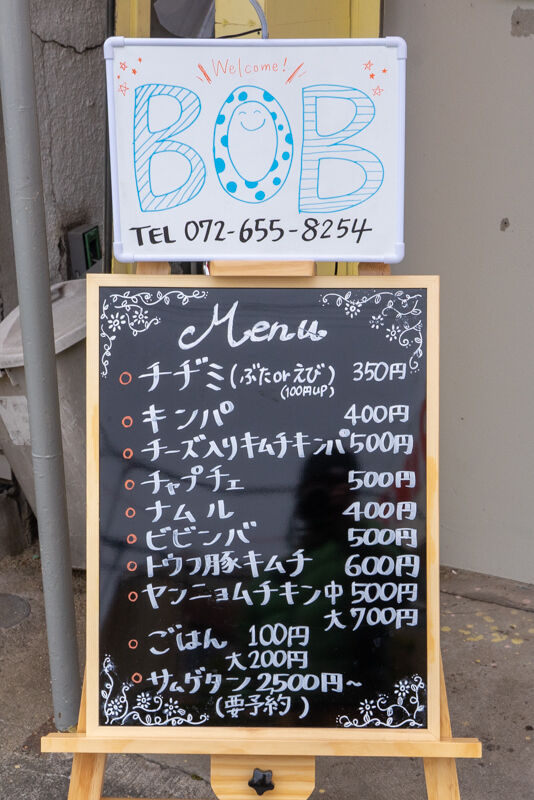 Welcome!
BOB
TEL 072-655-8254
Menu
チヂミ(ぶたorえび) 350円
(100円UP)
キンパ 400円
チーズ入りキムチキンパ 500円
チャプチェ 500円
ナムル 400円
ビビンバ 500円
トウフ豚キムチ 600円
ヤンニョムチキン中 500円
大 700円
ごはん 100円
大200円
サムゲタン 2500円~
(要予約)